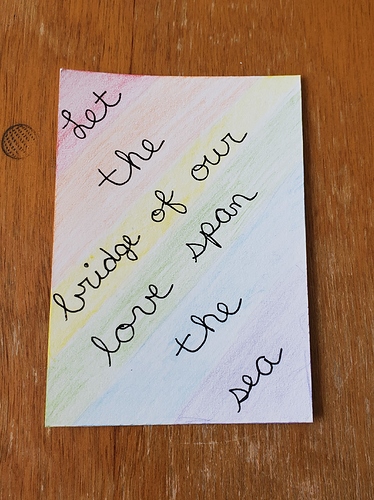 Let
the
bridge of our
love span
the
sea